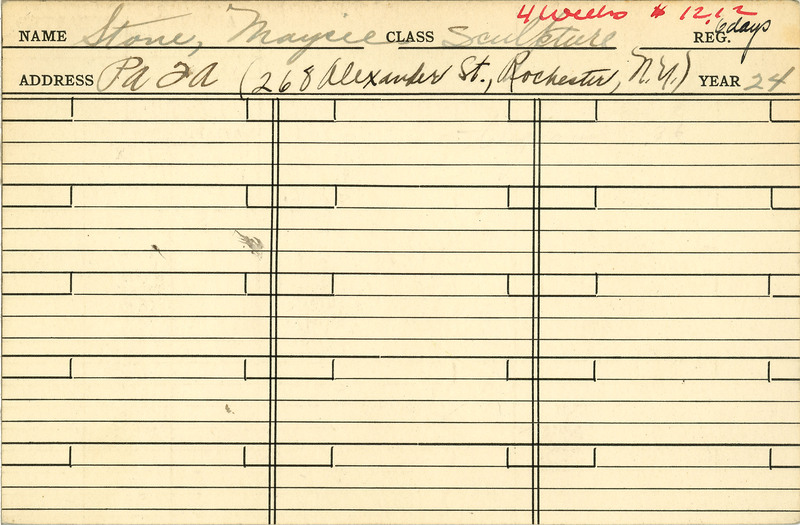 4 Weeks $12.12
NAME Stone, Maysie CLASS Sculpture REG. 6days
ADDRESS PAFA (268 Alexander St., Rochester, N.Y.) YEAR 24